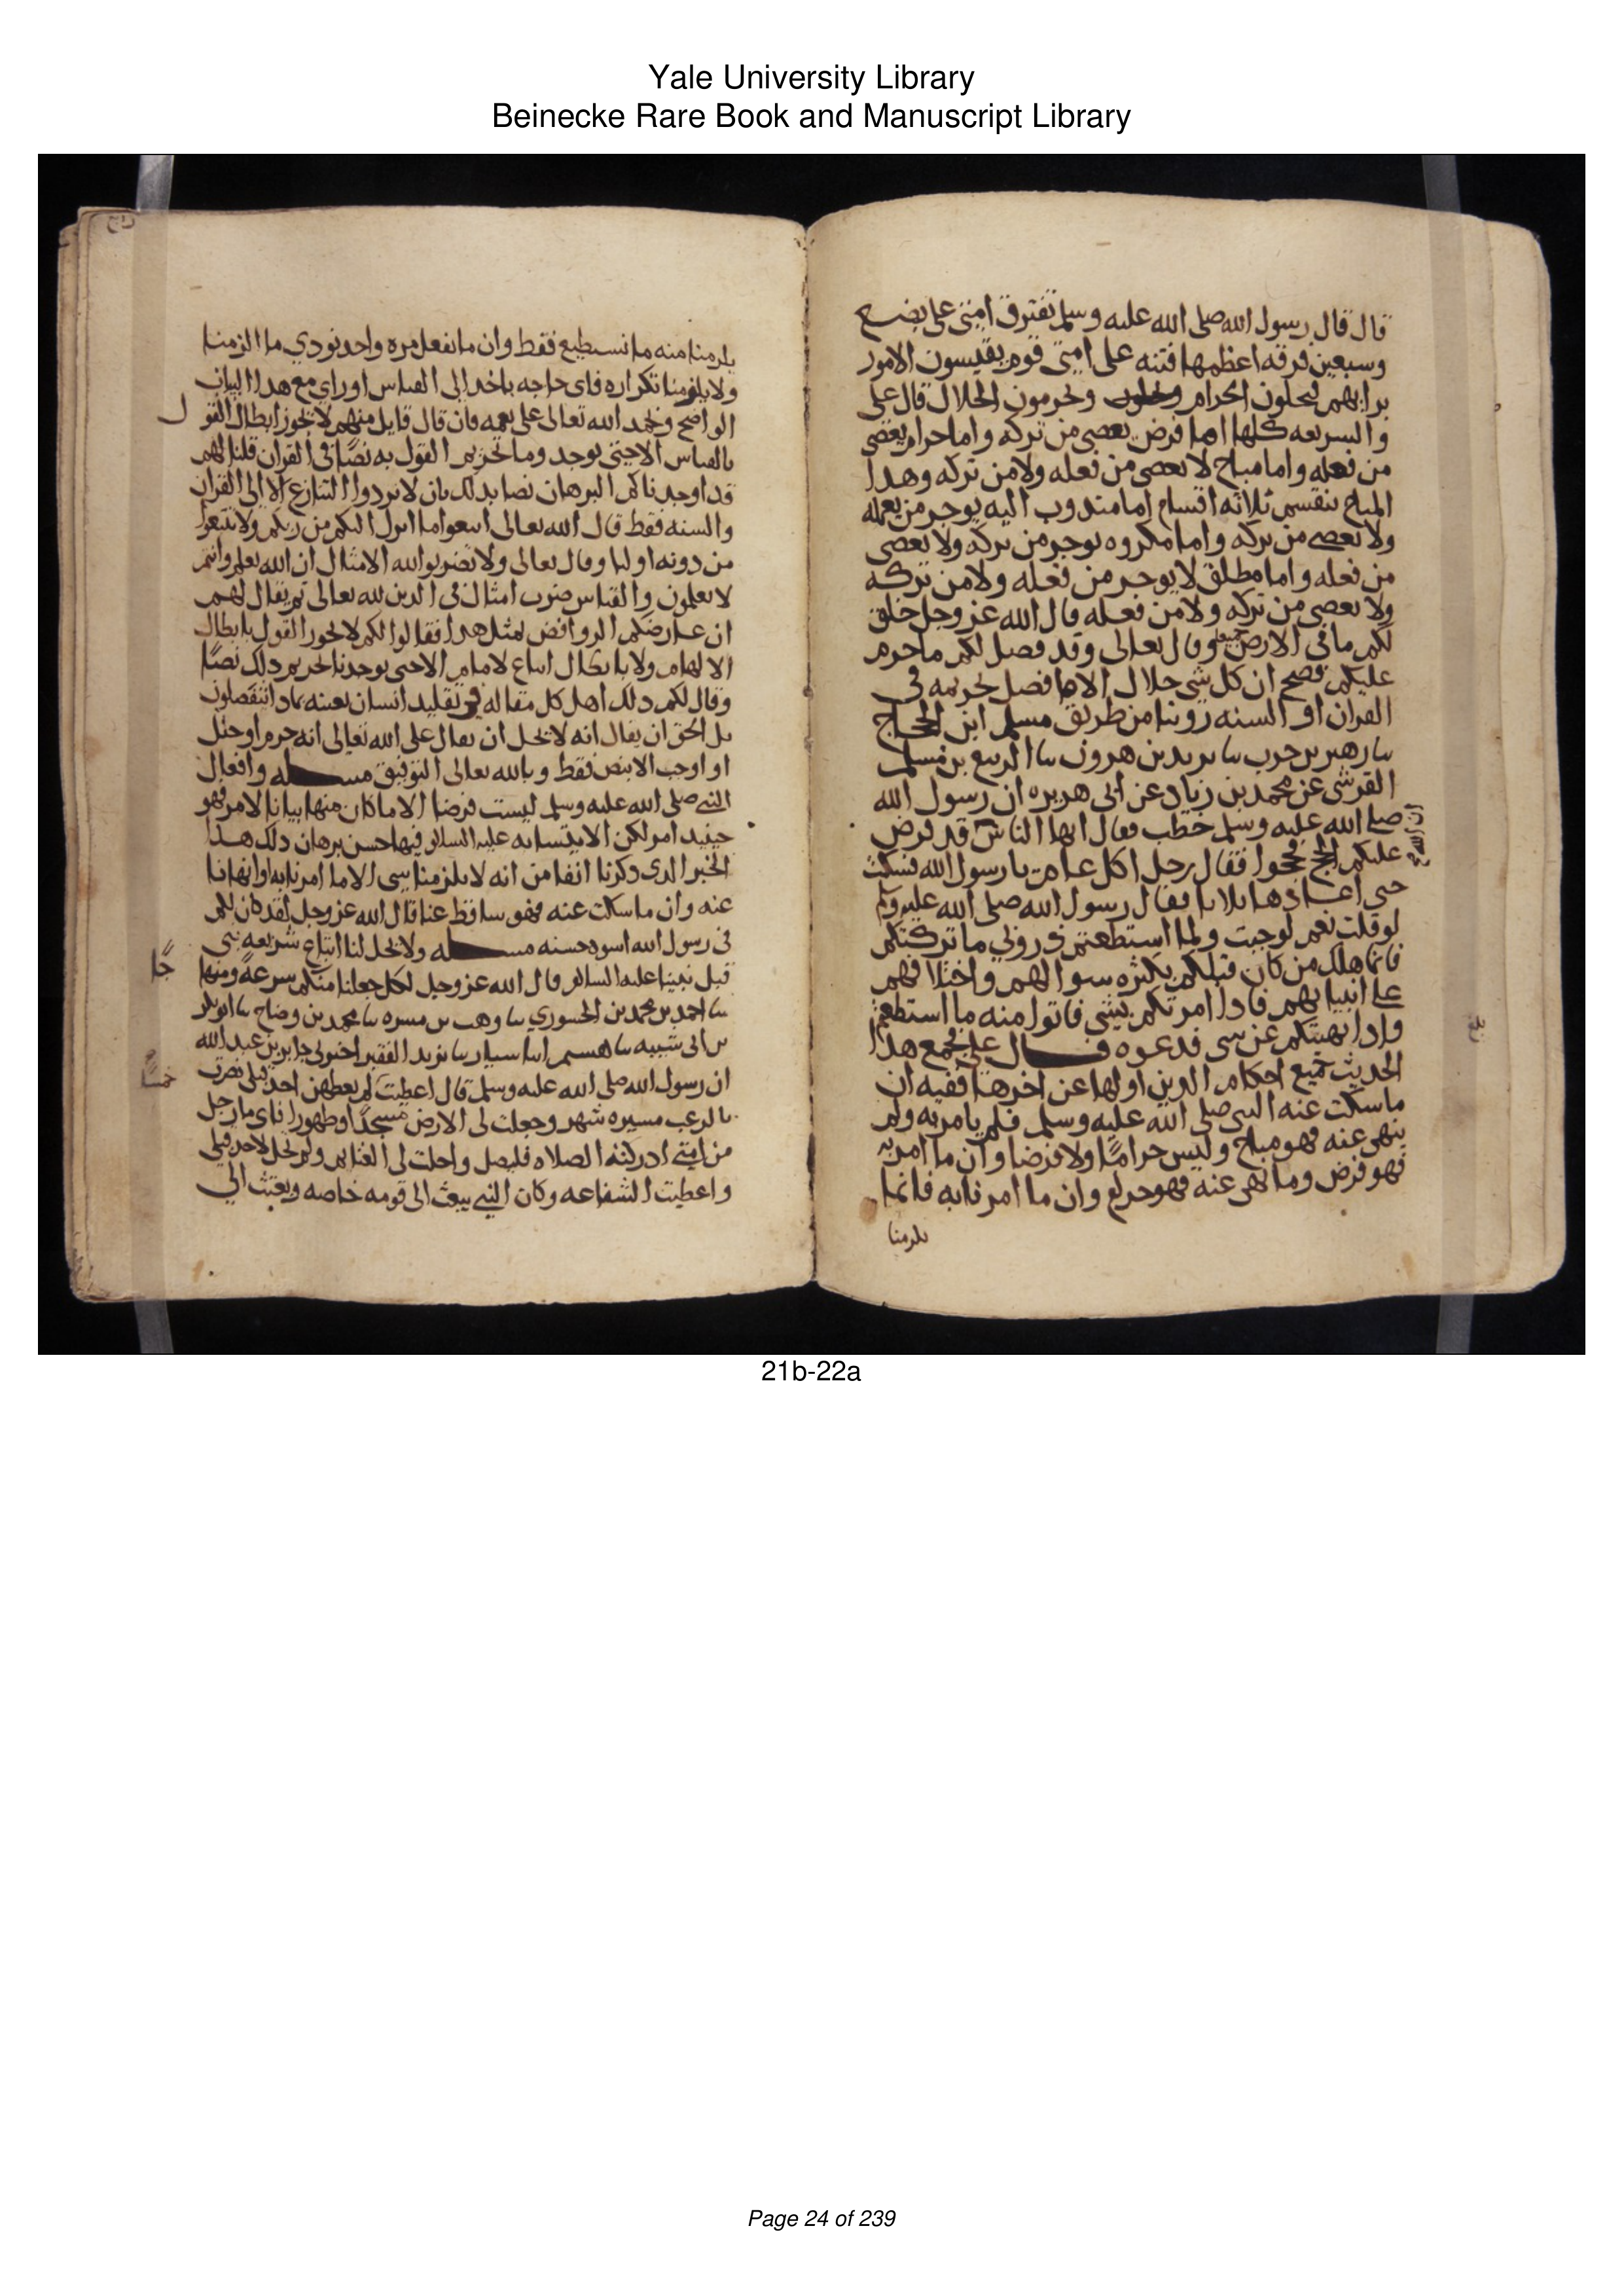 Yale University Library
Beinecke Rare Book and Manuscript Library
قال قال رسول الله صلى الله عليه وسلم تفترق امتى على بضع
وسبعين فرقه اعظمها فتنه على امتى قوم يقيسون الامور
برايهم فيحلون الحرام ويحرمون الحلال قال على
والشريعه كلها اما فرض يعصى من تركه واما حرام يعصى
من فعله واما مباح لا يعصى من فعله ولا من تركه وهدا
المباح ينقسم ثلاثه اقسام اما مندوب اليه يوجر من فعله
ولا يعصى من تركه واما مكروه يوجر من تركه ولا يعصى
من فعله واما مطلق لا يوجر من فعله ولا من تركه
ولا يعصى من تركه ولا من فعله قال الله عز وجل خلق
لكم ما فى الارض جميعا وقال تعالى وقد فصل لكم ما حرم
عليكم فصح ان كل شى حلال الا ما فصل تحريمه فى
القران او السنه روينا من طريق مسلم ابن الحجاج
نا زهير بن حرب نا يزيد بن هرون نا الربيع بن مسلم
القرشى عن محمد بن زياد عن ابى هريره ان رسول الله
صلى الله عليه وسلم خطب فقال ايها الناس قد فرض
عليكم الحج فحجوا فقال رجل اكل عام يا رسول الله فسكت
حتى اعادها ثلاثا فقال رسول الله صلى الله عليه وسلم
لو قلت نعم لوجبت ولما استطعتم ذرونى ما تركتكم
فانما هلك من كان قبلكم بكثره سوالهم واختلافهم
على انبيايهم فادا امرتكم بشى فاتوا منه ما استطعتم
وادا نهيتكم عن شى فدعوه قال على فجمع هدا
الحديث جميع احكام الدين اولها عن اخرها ففيه ان
ما سكت عنه النبى صلى الله عليه وسلم فلم يامر به ولم
ينهى عنه فهو مباح وليس حراما ولا فرضا وان ما امر به
فهو فرض وما نهى عنه فهو حرام وان ما امرنا به فانما
يلزمنا
بلغ
يلزمنا منه ما نستطيع فقط وان ما نفعل مره واحد نودي ما الزمنا
ولا يلزمنا تكراره فاى حاجه باحد الى القياس او راي مع هدا البيان
الواضح ونحمد الله تعالى على نعمه فان قال قايل منهم لا يجوز ابطال القول
بالقياس الا حتى يوجد وما تحريم القول به نصا فى القران قلنا لهم
قد اوجدناكم البرهان نصا بدلك بان لا تردوا التنازع الا الى القران
والسنه فقط قال الله تعالى اتبعوا ما انزل اليكم من ربكم ولا تتبعوا
من دونه اوليا وقال تعالى ولا تضربوا لله الامثال ان الله يعلم وانتم
لا تعلمون والقياس ضرب امثال فى الدين لله تعالى ثم يقال لهم
ان عارضكم الروافض بمثل هدا فقالوا لكم لا يجوز القول بابطال
الالهام ولا بابطال اتباع الامام الا حتى يوجدنا تحريم دلك نصا
وقال لكم دلك اهل كل مقاله فى تقليد انسان بعينه بمادا تنفصلون
بل الحق ان يقال انه لا يحل ان يقال على الله تعالى انه حرم او حلل
او اوجب الا بنص فقط وبالله تعالى التوفيق مسله وافعال
النبى صلى الله عليه وسلم ليست فرضا الا ما كان منها بيانا لامر فهو
حينيد امر لكن الايتسا به عليه السلام فيها حسن برهان دلك هدا
الخبر الدى دكرنا انفا من انه لا يلزمنا شى الا ما امرنا به او نهانا
عنه وان ما سكت عنه فهو ساقط عنا قال الله عز وجل لقد كان لكم
فى رسول الله اسوه حسنه مسله ولا يحل لنا اتباع شريعه نبى
قبل نبينا عليه السلام قال الله عز وجل لكل جعلنا منكم شرعه ومنهاجا
نا احمد بن محمد بن الجسوري نا وهب بن مسره نا محمد بن وضاح نا ابو بكر
بن ابى شيبه نا هشيم انا سيار نا يزيد الفقير اخبرنى جابر بن عبد الله
ان رسول الله صلى الله عليه وسلم قال اعطيت خمسا لم يعطهن احد قبلى نصرت
بالرعب مسيره شهر وجعلت لى الارض مسجدا وطهورا فاى ما رجل
من امتى ادركته الصلاه فليصل واحلت لى الغنايم ولم تحل لاحد قبلى
واعطيت الشفاعه وكان النبى يبعث الى قومه خاصه وبعثت الى
21b-22a
Page 24 of 239